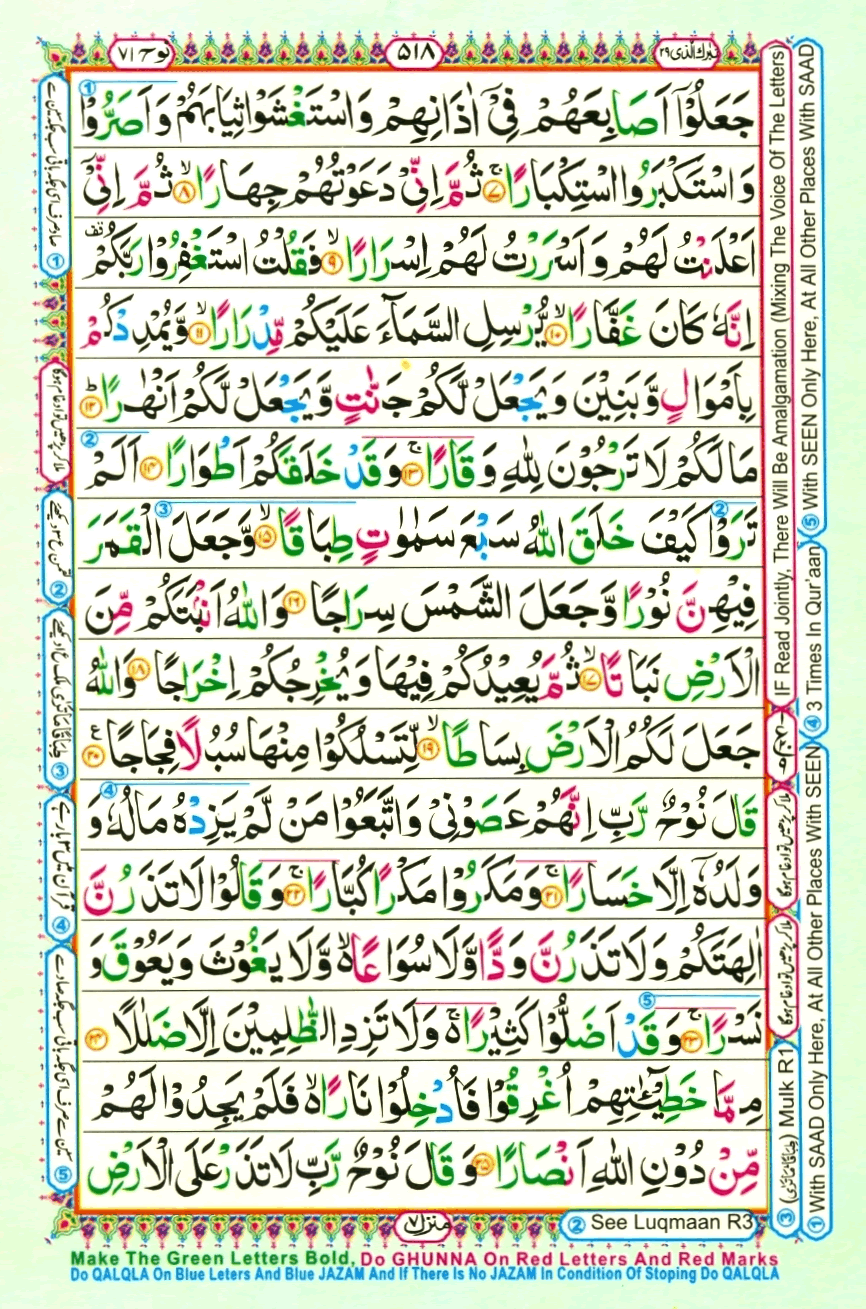 تبٰرک الذی ۲۹
۵۱۸
نوح ۷۱
جَعَلُوْۤا اَصَابِعَهُمْ فِیْۤ اٰذَانِهِمْ وَاسْتَغْشَوْا ثِیَابَهُمْ وَاَصَرُّوْا
وَاسْتَكْبَرُوا اسْتِكْبَارًا ۚ۷ ثُمَّ اِنِّیْ دَعَوْتُهُمْ جِهَارًا ۙ۸ ثُمَّ اِنِّیْۤ
اَعْلَنْتُ لَهُمْ وَاَسْرَرْتُ لَهُمْ اِسْرَارًا ۙ۹ فَقُلْتُ اسْتَغْفِرُوْا رَبَّكُمْ ۫ؕ
اِنَّهٗ كَانَ غَفَّارًا ۙ۱۰ یُّرْسِلِ السَّمَآءَ عَلَیْكُمْ مِّدْرَارًا ۙ۱۱ وَّیُمْدِدْكُمْ
بِاَمْوَالٍ وَّبَنِیْنَ وَیَجْعَلْ لَّكُمْ جَنّٰتٍ وَّیَجْعَلْ لَّكُمْ اَنْهٰرًا ؕ۱۲
مَا لَكُمْ لَا تَرْجُوْنَ لِلّٰهِ وَقَارًا ۚ۱۳ وَقَدْ خَلَقَكُمْ اَطْوَارًا ۱۴ اَلَمْ
تَرَوْا كَیْفَ خَلَقَ اللّٰهُ سَبْعَ سَمٰوٰتٍ طِبَاقًا ۙ۱۵ وَّجَعَلَ الْقَمَرَ
فِیْهِنَّ نُوْرًا وَّجَعَلَ الشَّمْسَ سِرَاجًا ۱۶ وَاللّٰهُ اَنْۢبَتَكُمْ مِّنَ
الْاَرْضِ نَبَاتًا ۙ۱۷ ثُمَّ یُعِیْدُكُمْ فِیْهَا وَیُخْرِجُكُمْ اِخْرَاجًا ۱۸ وَاللّٰهُ
جَعَلَ لَكُمُ الْاَرْضَ بِسَاطًا ۙ۱۹ لِّتَسْلُكُوْا مِنْهَا سُبُلًا فِجَاجًا ۲۰ ع
قَالَ نُوْحٌ رَّبِّ اِنَّهُمْ عَصَوْنِیْ وَاتَّبَعُوْا مَنْ لَّمْ یَزِدْهُ مَالُهٗ وَ
وَلَدُهٗۤ اِلَّا خَسَارًا ۚ۲۱ وَمَكَرُوْا مَكْرًا كُبَّارًا ۚ۲۲ وَقَالُوْا لَا تَذَرُنَّ
اٰلِهَتَكُمْ وَلَا تَذَرُنَّ وَدًّا وَّلَا سُوَاعًا ۙ۬ وَّلَا یَغُوْثَ وَیَعُوْقَ وَ
نَسْرًا ۚ۲۳ وَقَدْ اَضَلُّوْا كَثِیْرًا ۚ۬ وَلَا تَزِدِ الظّٰلِمِیْنَ اِلَّا ضَلٰلًا ۲۴
مِمَّا خَطِیْٓـٰٔتِهِمْ اُغْرِقُوْا فَاُدْخِلُوْا نَارًا ۙ۬ فَلَمْ یَجِدُوْا لَهُمْ
مِّنْ دُوْنِ اللّٰهِ اَنْصَارًا ۲۵ وَقَالَ نُوْحٌ رَّبِّ لَا تَذَرْ عَلَی الْاَرْضِ
منزل ۷
② See Luqmaan R3
③ (طِبَاقًا مَا تَرٰی) Mulk R1
IF Read Jointly, There Will Be Amalgamation (Mixing The Voice Of The Letters)
① With SAAD Only Here, At All Other Places With SEEN
④ 3 Times In Qur'aan
⑤ With SEEN Only Here, At All Other Places With SAAD
Make The Green Letters Bold, Do GHUNNA On Red Letters And Red Marks
Do QALQLA On Blue Leters And Blue JAZAM And If There Is No JAZAM In Condition Of Stoping Do QALQLA